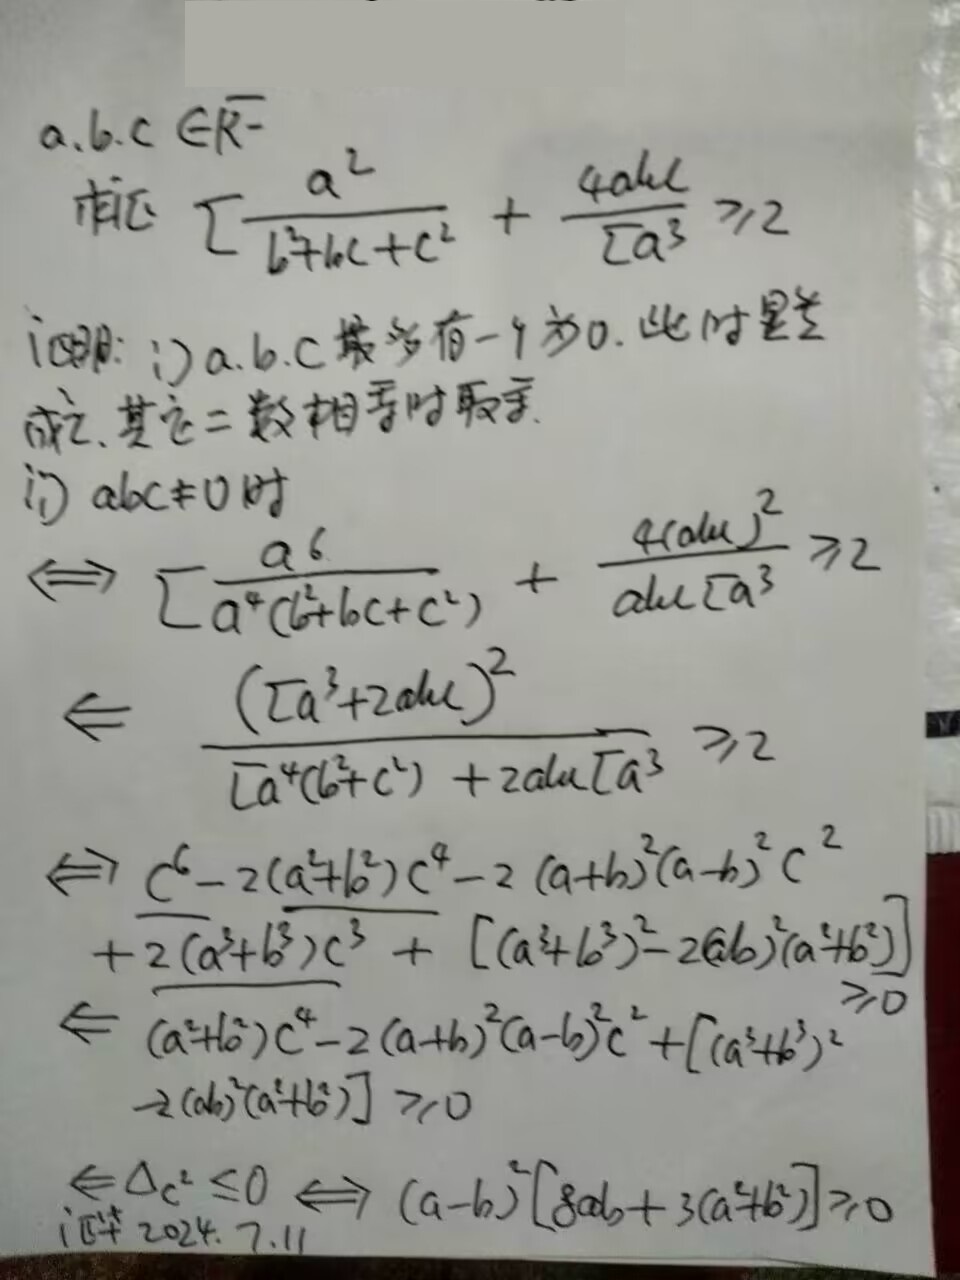 a.b.c ∈ R̅⁻
求证 Σ a²/(b²+bc+c²) + 4abc/Σa³ ≥ 2
证明: i) a.b.c 最多有一个为0. 此时显然
成立. 其它二数相等时取等.
ii) abc≠0时
⟺ Σ a⁶/(a⁴(b²+bc+c²)) + 4(abc)²/(abcΣa³) ≥ 2
⟸ (Σa³+2abc)²/(Σa⁴(b²+c²) + 2abcΣa³) ≥ 2
⟺ c⁶ - 2(a²+b²)c⁴ - 2(a+b)²(a-b)²c²
+ 2(a³+b³)c³ + [(a³+b³)² - 2(ab)²(a²+b²)]
≥0
⟸ (a²+b²)c⁴ - 2(a+b)²(a-b)²c² + [(a³+b³)²
-2(ab)²(a²+b²)] ≥0
⟸ Δc² ≤0 ⟺ (a-b)²[8ab + 3(a²+b²)] ≥0
证毕 2024. 7.11